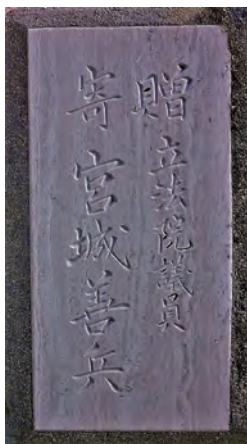 寄贈
立法院議員
宮城善兵